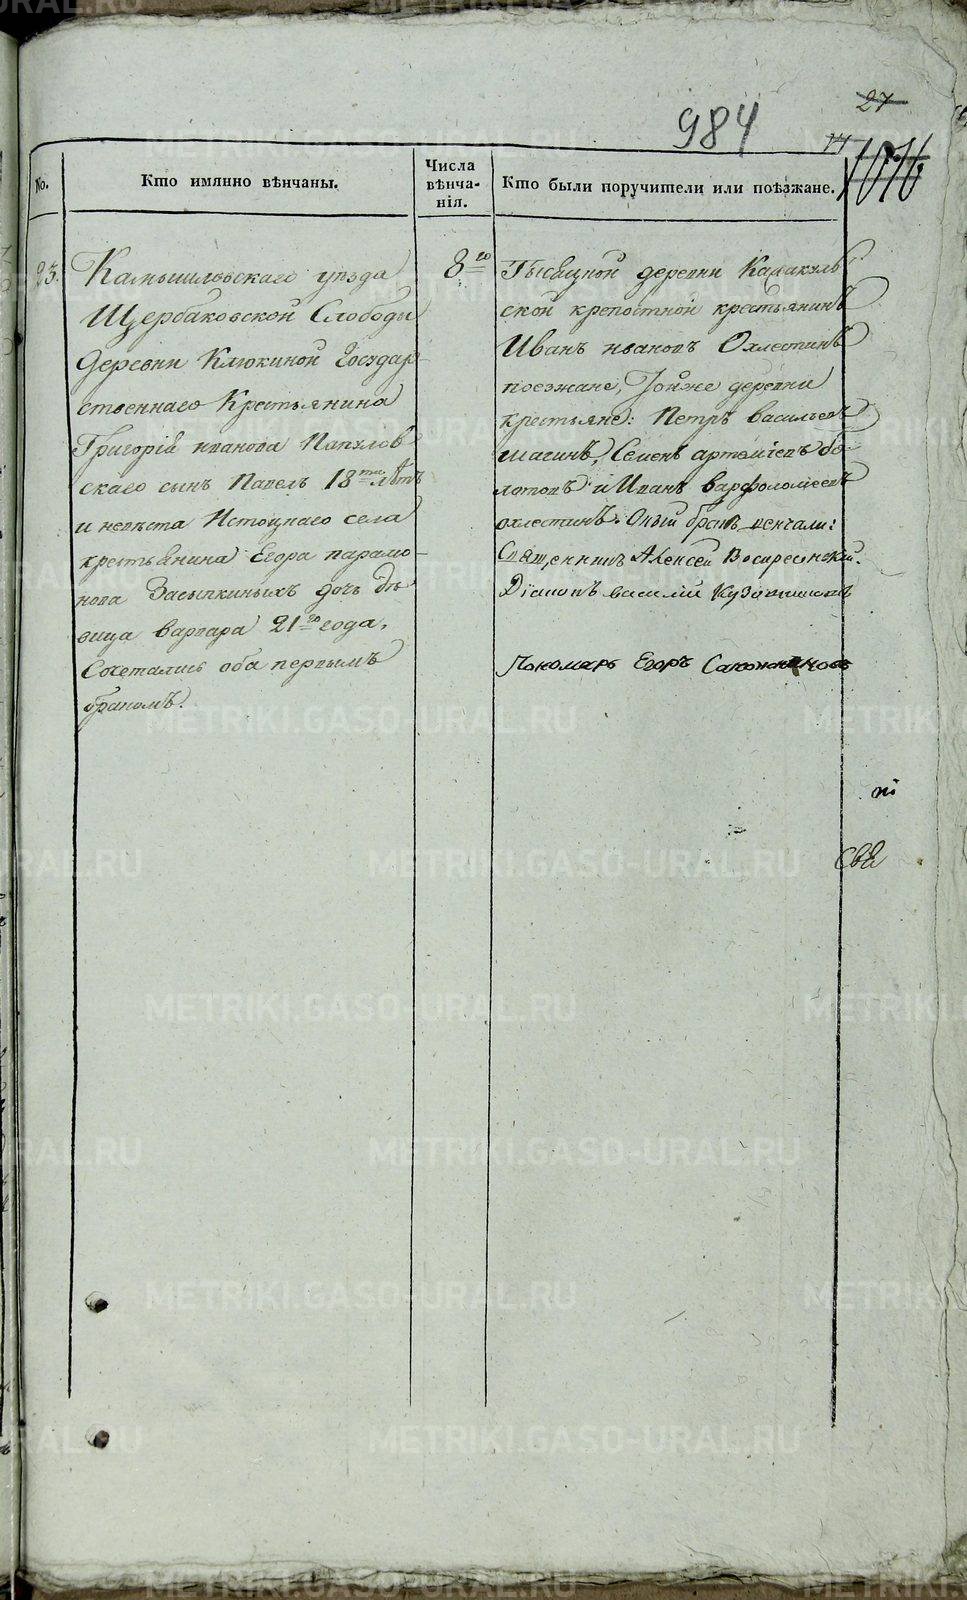 27
984
14
1076
No.
Кто имянно вѣнчаны.
Числа
вѣнча-
нія.
Кто были поручители или поѣзжане.
23.
Камышловскаго уѣзда
Щербаковской Слободы
деревни Клюкиной Государ-
ственнаго Крестьянина
Григорій иванова
скаго сынъ Павелъ 18ти лѣтъ
и невѣста Истоцкаго села
крестьянина Егора парамо-
нова Засыпкиныхъ дочь дѣ-
вица варвара 21го года.
Сочетались оба первымъ
бракомъ.
8го
Тысяцкой деревни
ской крепостной крестьянинъ
Иванъ ивановъ Охлестинъ
поезжане, Той же деревни
крестьяне: Петръ васильевъ
шагинъ, Семенъ артемьевъ бо-
лотовъ и Иванъ варфоломеевъ
охлестинъ. Оный бракъ венчали:
Священникъ Алексей Воскресенскій.
Діаконъ василій
Пономарь Егоръ
METRIKI.GASO-URAL.RU